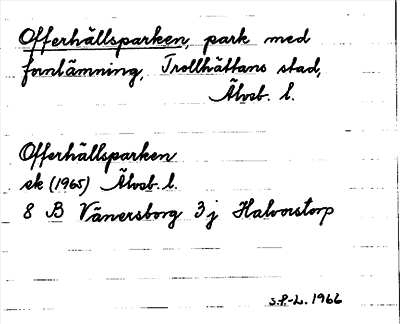 Offerhällsparken, park med
fornlämning, Trollhättans stad,
Älvsb. l.
Offerhällsparken
ek (1965) Älvsb. l.
8 B Vänersborg 3 j Halvorstorp
S.P.-L. 1966